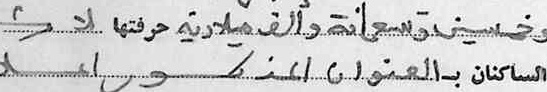 وخمسين وتسعمائة وألف ميلادية حرفتها لا شيء
الساكنان بـ العنوان المذكور أعلاه